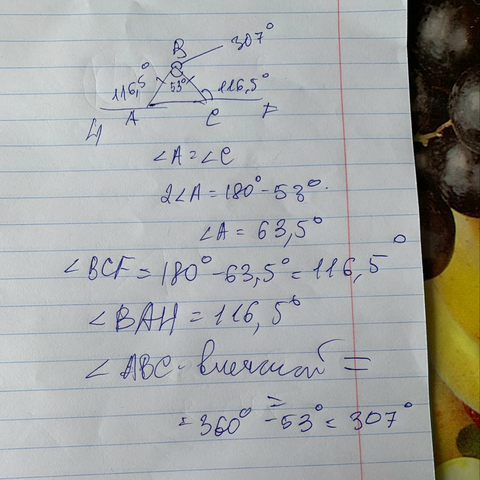 B 307°
116,5° 53° 116,5°
H A C F
∠A = ∠C
2∠A = 180° - 53°.
∠A = 63,5°
∠BCF = 180° - 63,5° = 116,5°
∠BAH = 116,5°
∠ABC - внешний =
= 360° - 53° = 307°